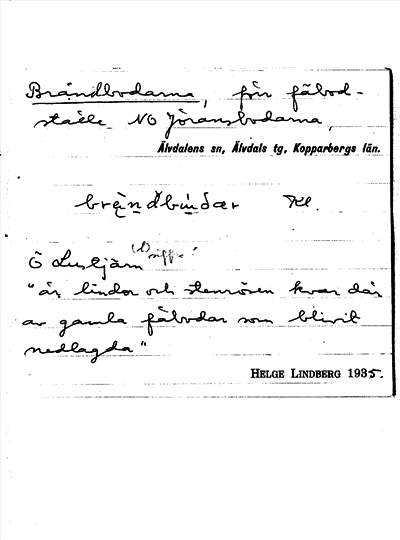 Brändbodarna, förr fäbod-
ställe NO Jöransbodarna,
Älvdalens sn, Älvdals tg, Kopparbergs län.
Kl.
Ö
"är lindor och stenrösen kvar där
av gamla fäbodar som blivit
nedlagda"
HELGE LINDBERG 1935.